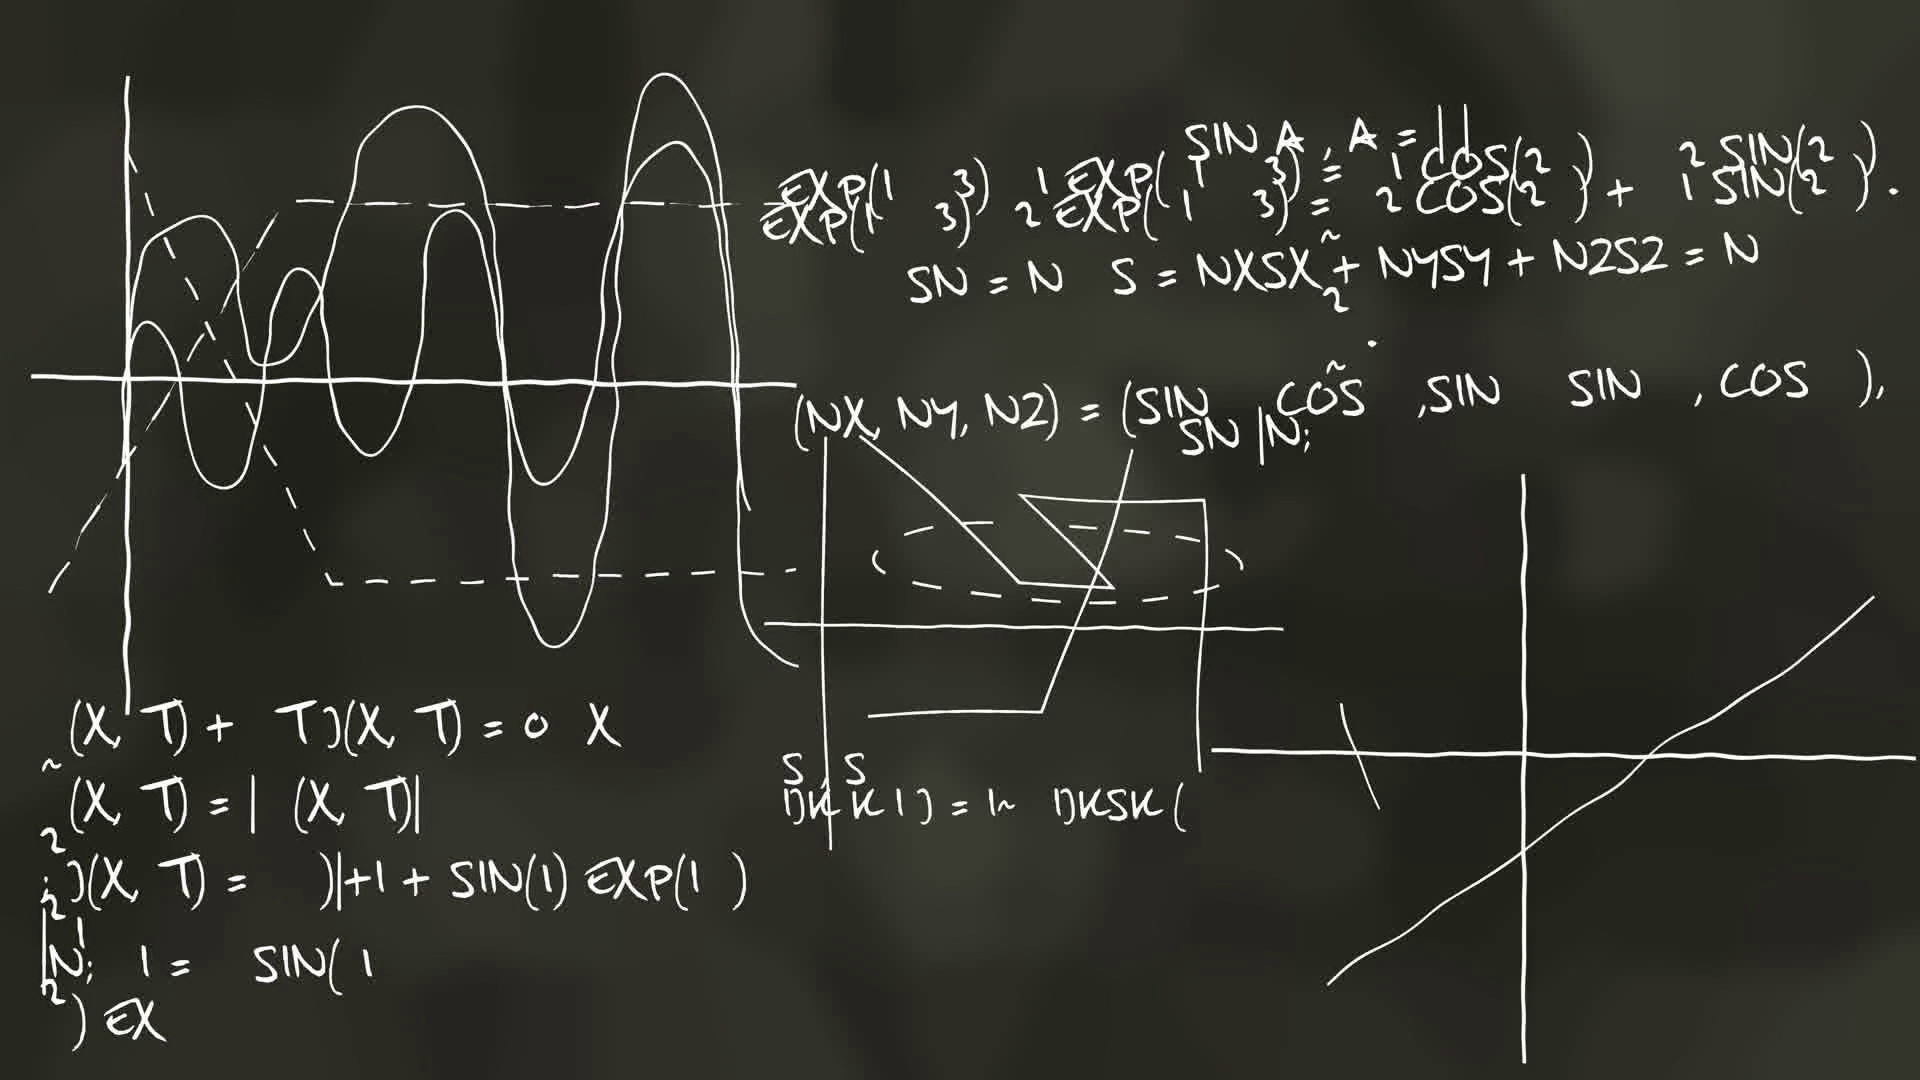 SIN A , A = ||
EXP(1 3) 1 EXP( 1 3) = 1 COS(2 ) 2 SIN(2 )
EXP(1 3) 2 EXP( 1 3) = 2 COS(2 ) + 1 SIN(2 ) .
SN = N S = NXSX + NYSY + NZSZ = N
~
2
(NX, NY, NZ) = (SIN COS , SIN SIN , COS ),
SN |N;
(X, T) + T)(X, T) = 0 X
~
(X, T) = | (X, T)|
2
)(X, T) = )|+1 + SIN(1) EXP(1 )
2
|N; 1 = SIN( 1
2
) EX
S S
DK K 1) = DKSK (